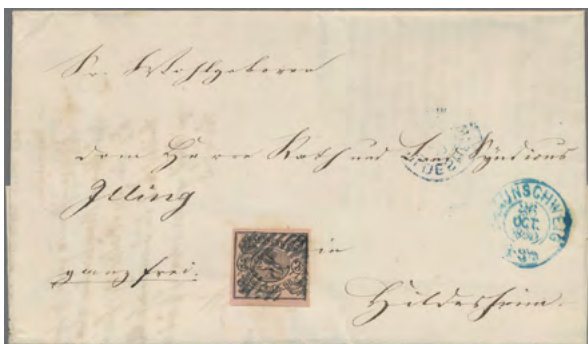 Sr. Wohlgeboren
dem Herrn Rath und Syndicus
Illing
in
ganz frei.
Hildesheim.
BRAUNSCHWEIG
26
OCT.